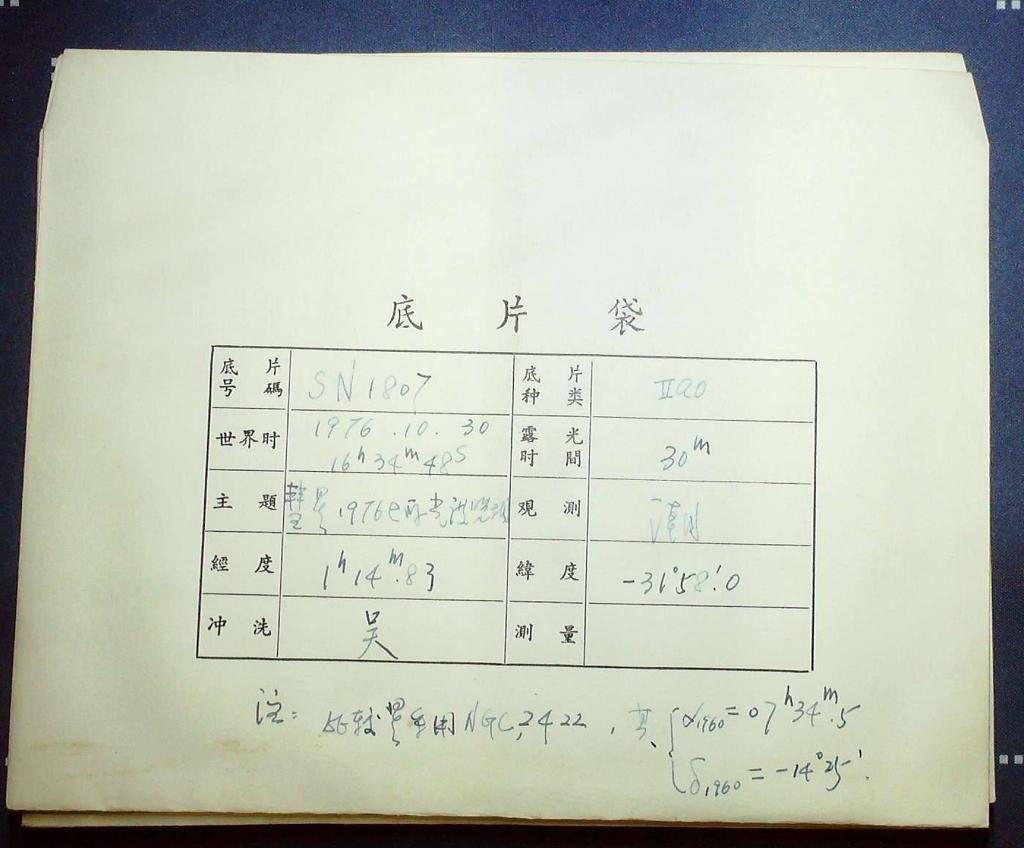 底片袋
底片号碼 SN1807 底片种类 IIaO
世界时 1976.10.30 16ʰ34ᵐ48ˢ 露光时間 30ᵐ
主題 1976e 观测
經度 1ʰ14ᵐ.83 緯度 -31°58′.0
冲洗 吴 测量
注: 比较星采用NGC 2422, 其 α₁₉₆₀=07ʰ34ᵐ.5
δ₁₉₆₀=-14°25′.